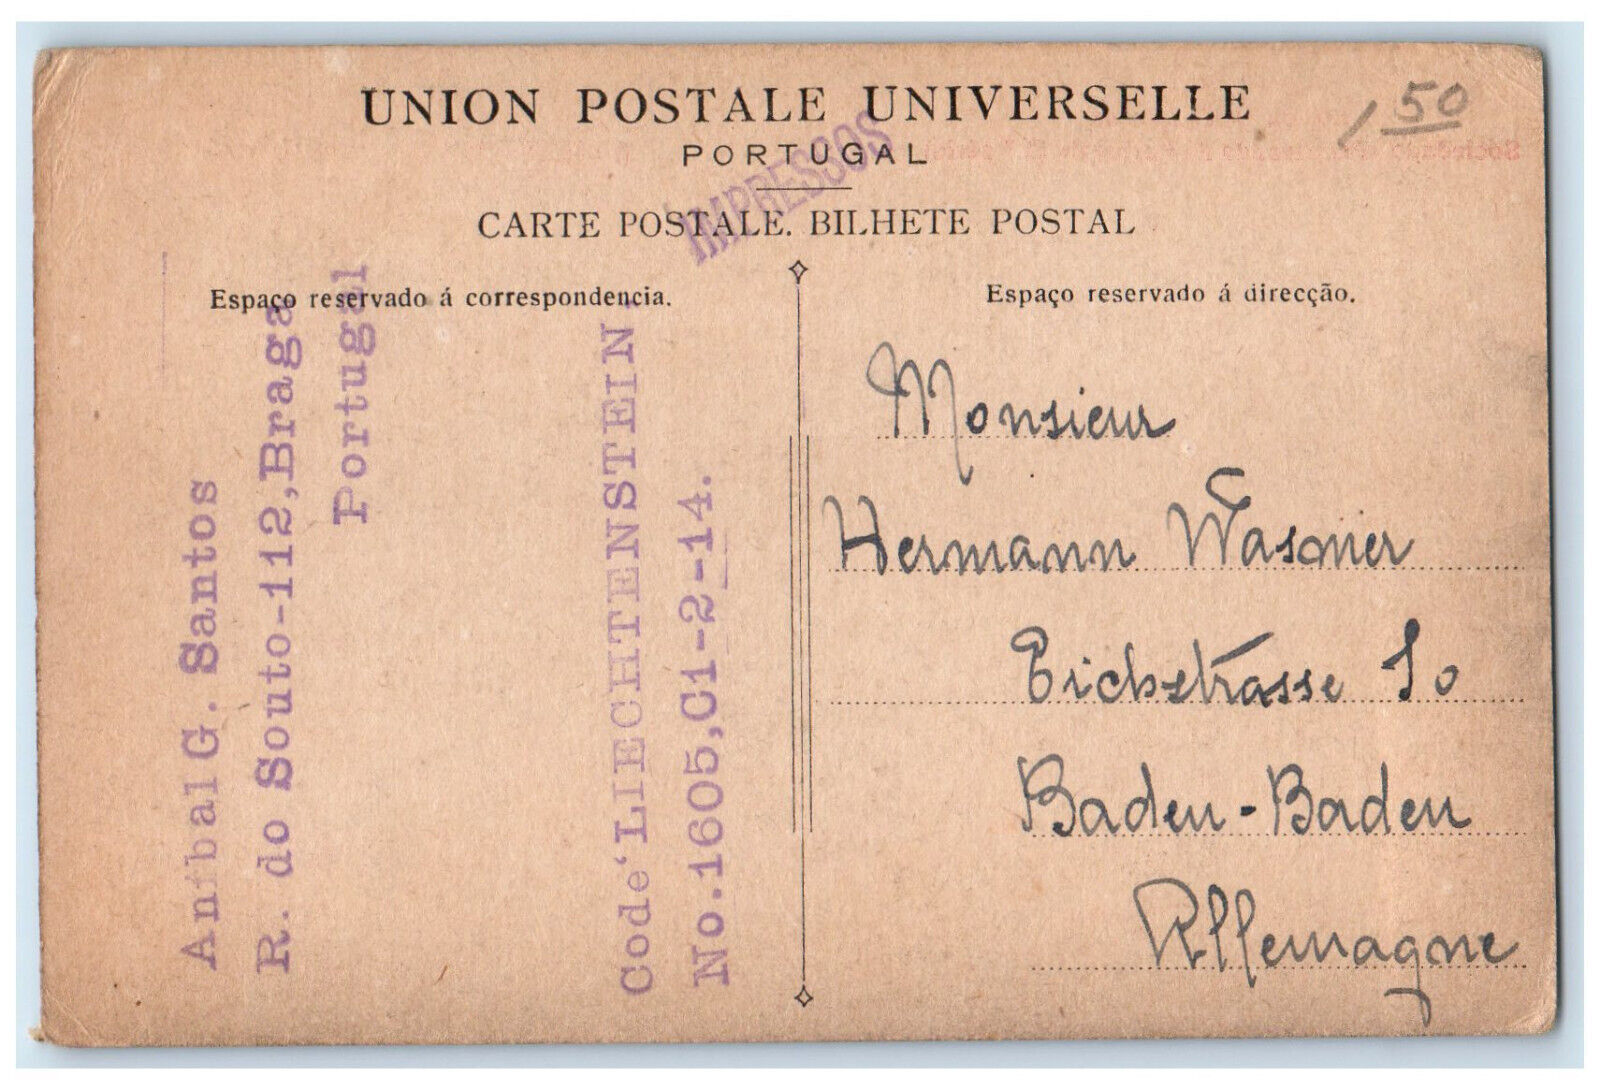 UNION POSTALE UNIVERSELLE
PORTUGAL
IMPRESSOS
CARTE POSTALE. BILHETE POSTAL
Espaço reservado á correspondencia.
Espaço reservado á direcção.
1 50
Anibal G. Santos
R. do Souto-112,Braga
Portugal
Code'LIECHTENSTEIN.
No.1605,C1-2-14.
Monsieur
Hermann Wasmer
Erichstrasse 10
Baden-Baden
Allemagne